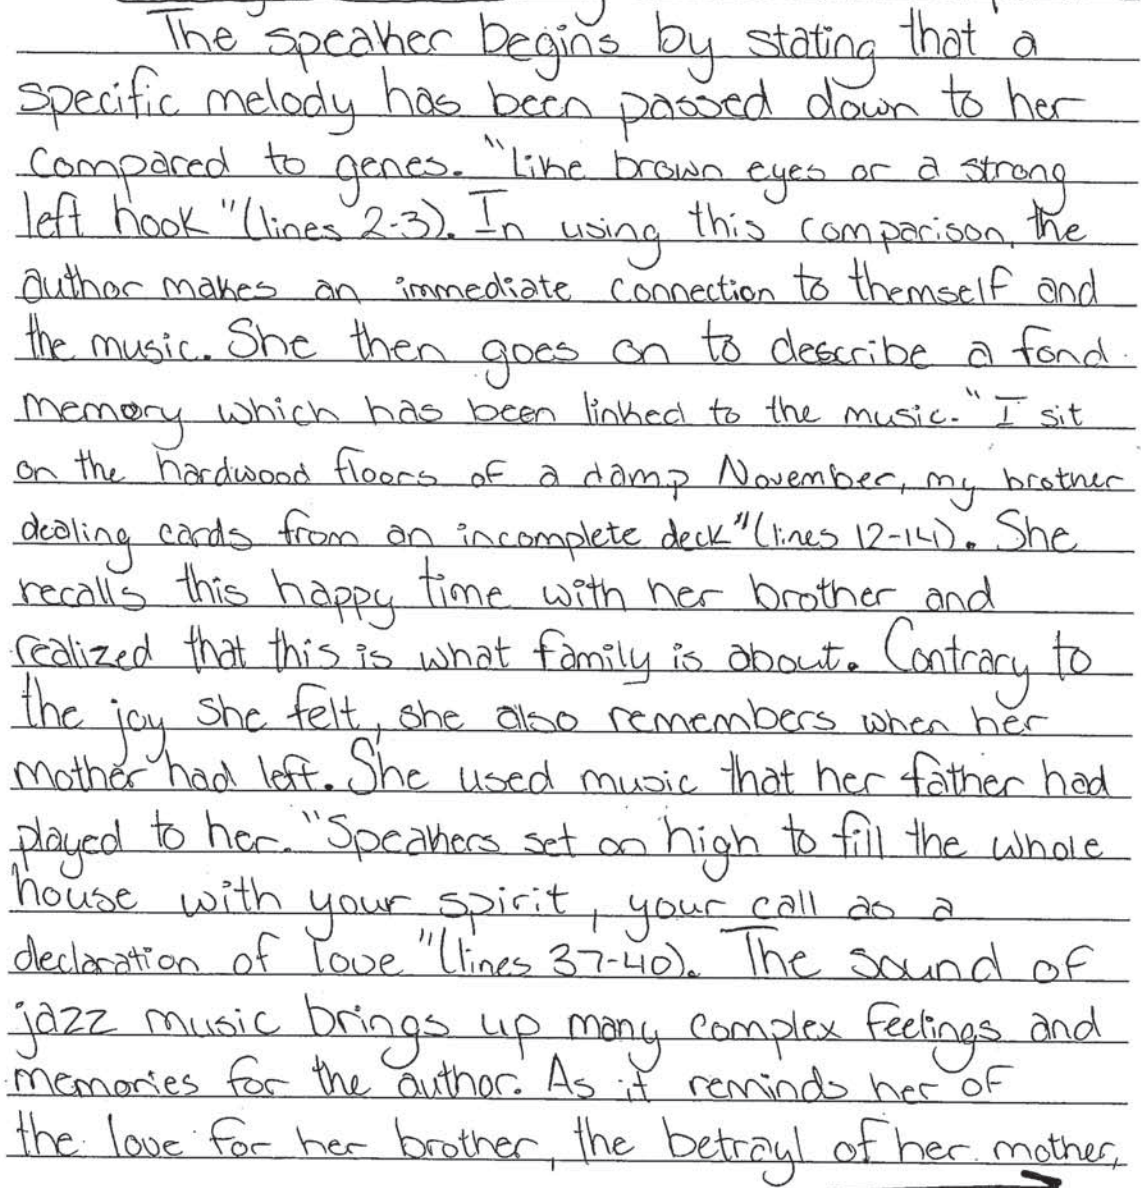 The speaker begins by stating that a
specific melody has been passed down to her
compared to genes. "Like brown eyes or a strong
left hook" (lines 2-3). In using this comparison, the
author makes an immediate connection to themself and
the music. She then goes on to describe a fond
memory which has been linked to the music. "I sit
on the hardwood floors of a damp November, my brother
dealing cards from an incomplete deck" (lines 12-14). She
recalls this happy time with her brother and
realized that this is what family is about. Contrary to
the joy she felt, she also remembers when her
mother had left. She used music that her father had
played to her. "Speakers set on high to fill the whole
house with your spirit, your call as a
declaration of love" (lines 37-40). The sound of
jazz music brings up many complex feelings and
memories for the author. As it reminds her of
the love for her brother, the betrayl of her mother,